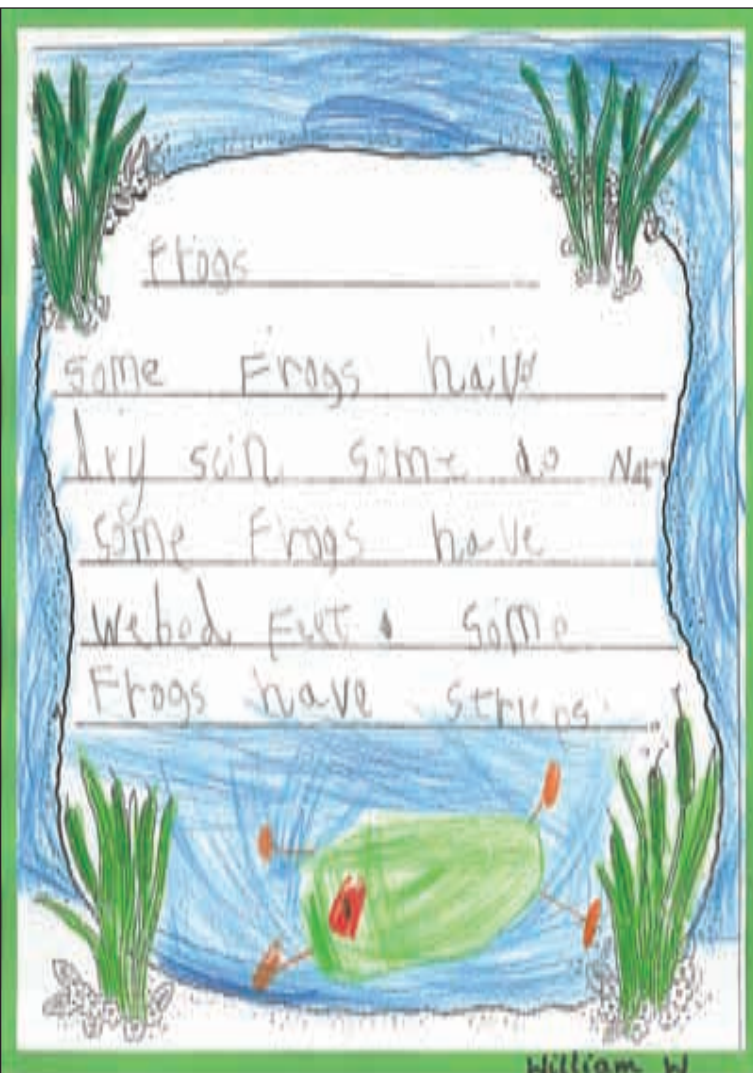 Frogs
some Frogs have
dry scin some do Not
some Frogs have
Webed Feet. some
Frogs have strips.
William W